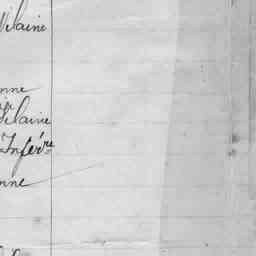 Vilaine
nne
Vilaine
Inférre
nne